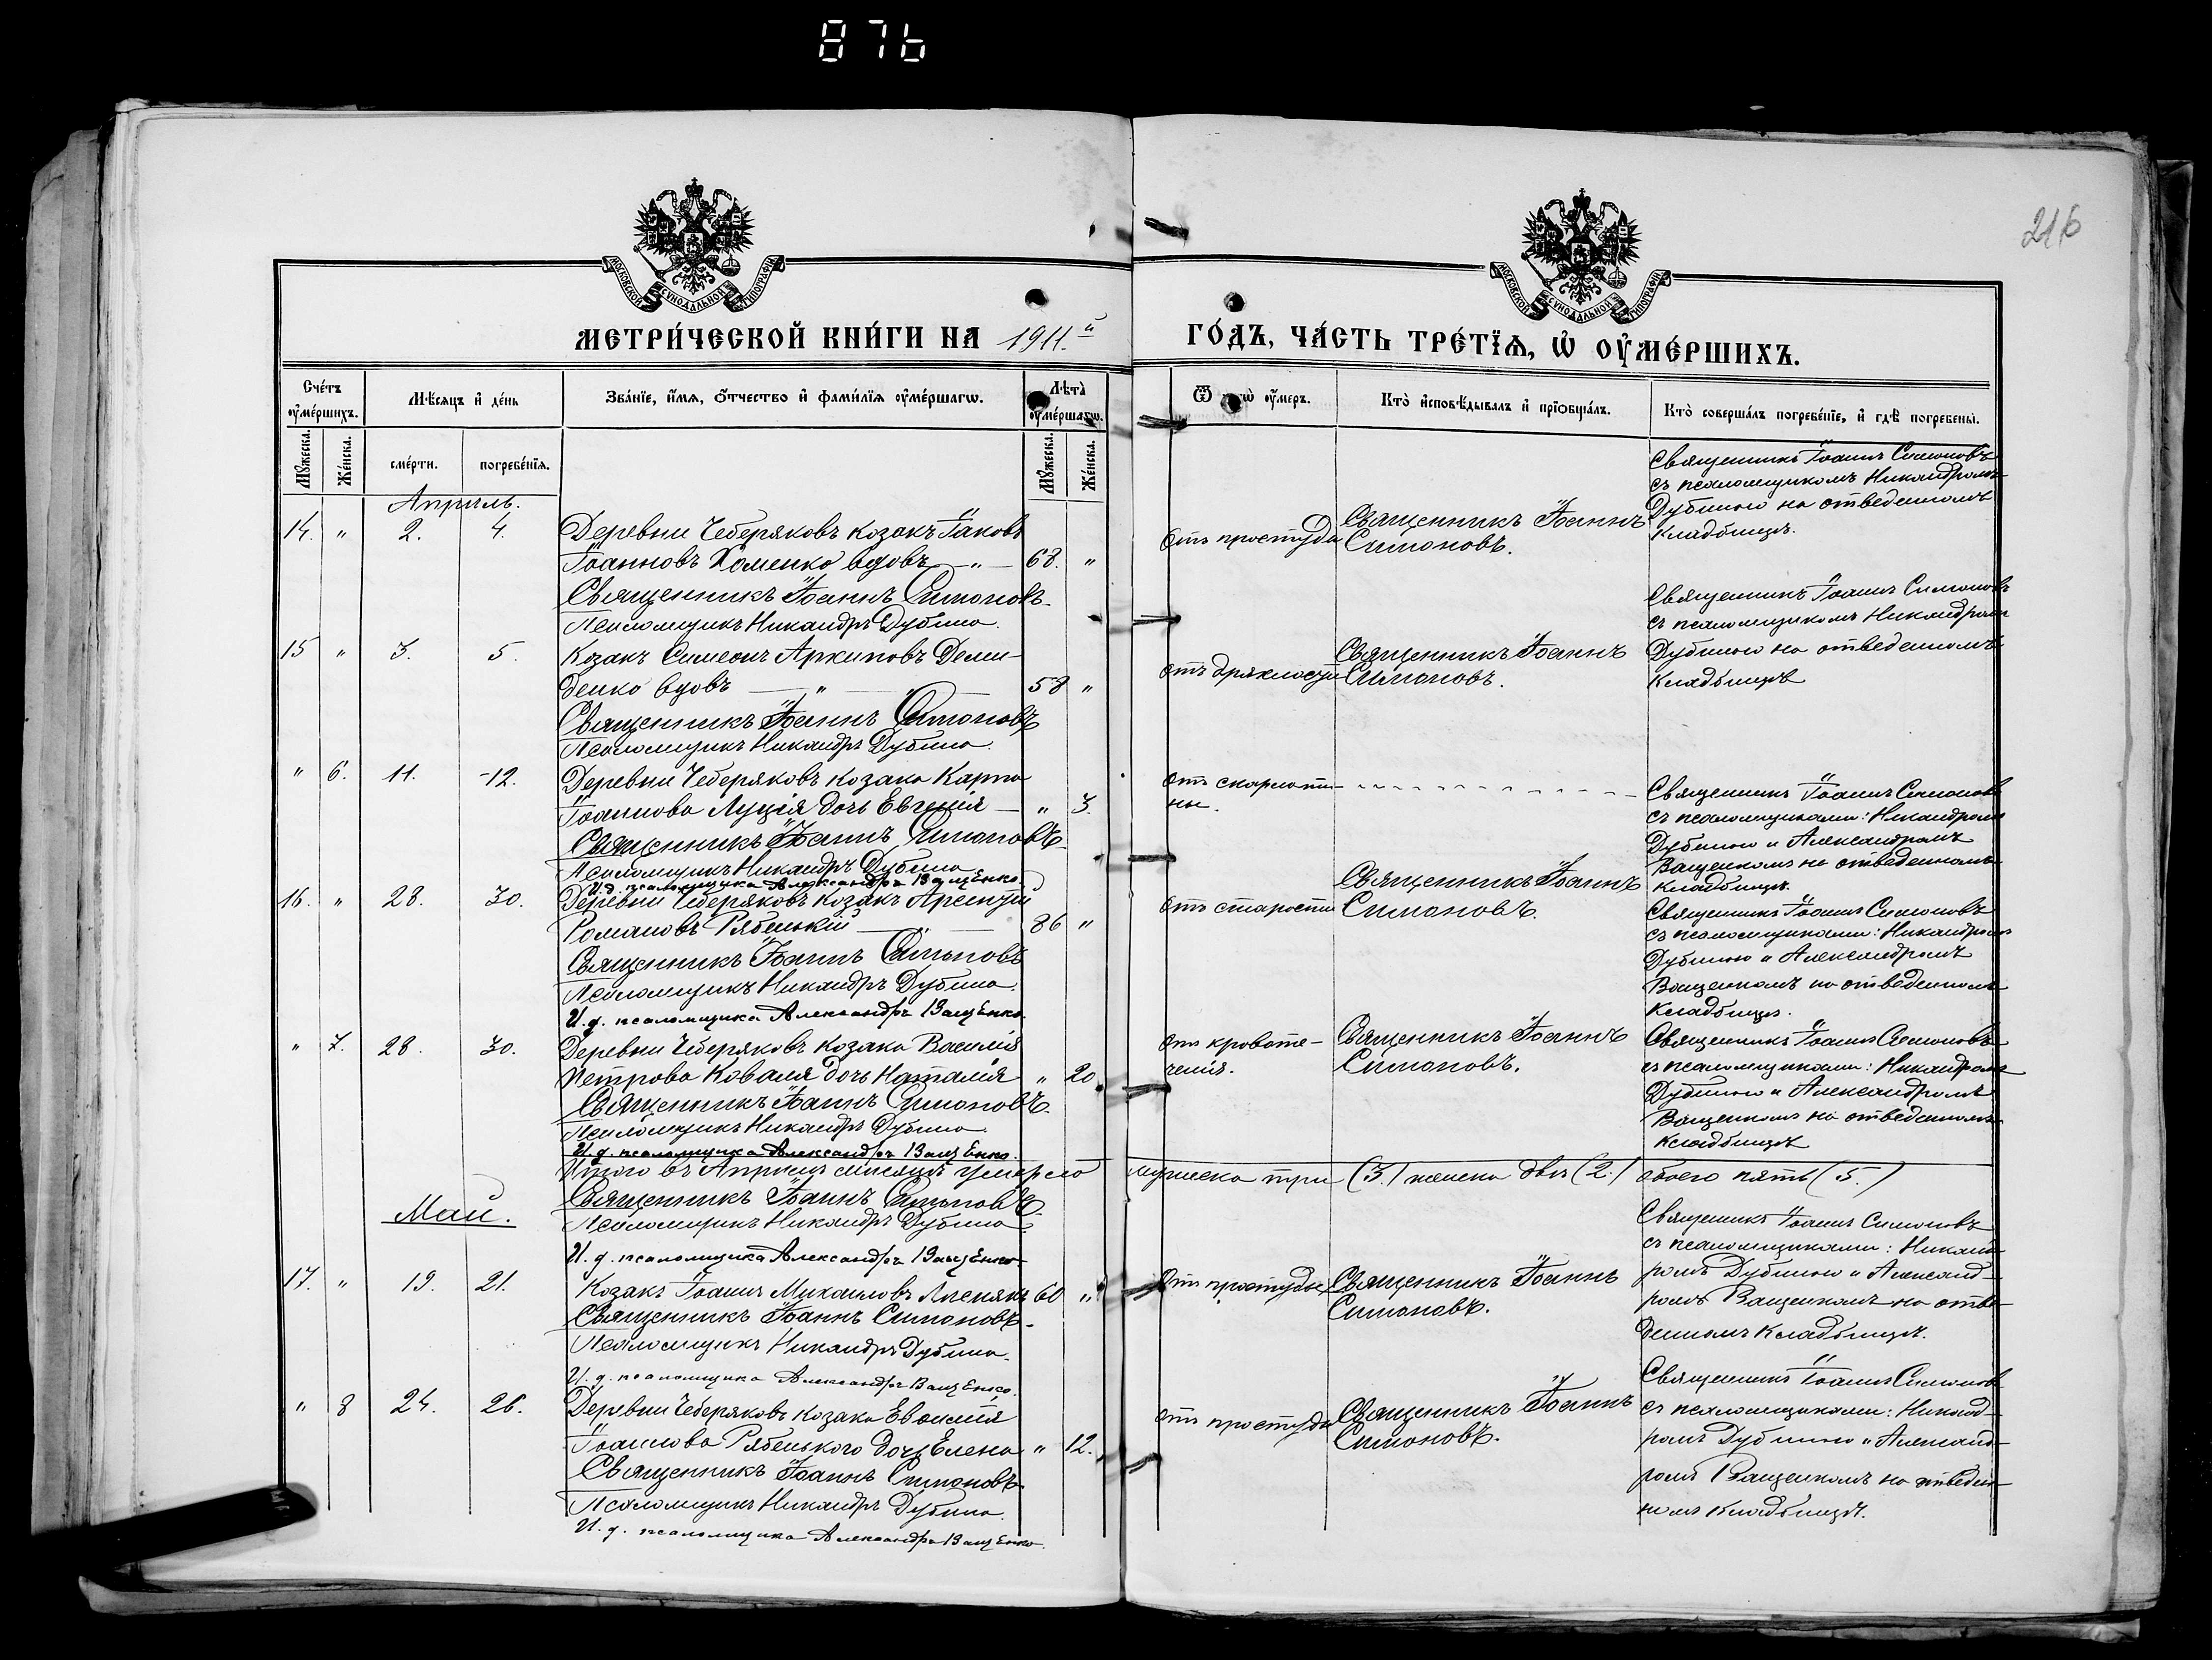 876
216
МОСКОВСКОЙ СѴНОДАЛЬНОЙ ТИПОГРАФІИ
МОСКОВСКОЙ СѴНОДАЛЬНОЙ ТИПОГРАФІИ
МЕТРИ́ЧЕСКОЙ КНИ́ГИ НА 1911.й
ГО́ДЪ, ЧА́СТЬ ТРЕ́ТЇѦ, Ѽ ОУ҆МЕ́РШИХЪ.
Сче́тъ оу҆ме́ршихъ.
Мѣ́сяцъ и҆ де́нь
Зва́нїе, и҆́мѧ, ѻ҆́тчество и҆ фами́лїѧ оу҆ме́ршагѡ.
Лѣта̀ оу҆ме́ршагѡ.
Ѿ оу҆́меръ.
Кто̀ и҆сповѣ́дывалъ и҆ прїѻбща́лъ.
Кто̀ соверша́лъ погребе́нїе, и҆ гдѣ̀ погребены̀.
Мꙋ́жеска.
Же́нска.
сме́рти.
погребе́нїѧ.
Мꙋ́жеска.
Же́нска.
Апрѣль.
14. " 2. 4. Деревни Чеберяковъ козакъ Іаковъ
Іоанновъ Хоменко вдовъ — " — 68. "
Священникъ Іоаннъ Симоновъ
Псаломщикъ Никандръ Дубина.
Отъ простуды
Священникъ Іоаннъ
Симоновъ.
Священникъ Іоаннъ Симоновъ
съ псаломщикомъ Никандромъ
Дубиною на отведенномъ
кладбищѣ.
15 " 3. 5. Козакъ Симеонъ Архиповъ Деми-
денко вдовъ — " — 58 "
Священникъ Іоаннъ Симоновъ
Псаломщикъ Никандръ Дубина.
отъ дряхлости
Священникъ Іоаннъ
Симоновъ.
Священникъ Іоаннъ Симоновъ
съ псаломщикомъ Никандромъ
Дубиною на отведенномъ
кладбищѣ
" 6. 11. 12. Деревни Чеберяковъ козака Карпа
Іоаннова дочь Евгенія — " 3.
Священникъ Іоаннъ Симоновъ
Псаломщикъ Никандръ Дубина
И.д. псаломщика Александръ Ващенко
отъ скарлати-
ны.
Священникъ Іоаннъ Симоновъ
съ псаломщиками: Никандромъ
Дубиною и Александромъ
Ващенкомъ на отведенномъ
кладбищѣ.
16. " 28. 30. Деревни Чеберяковъ козакъ Арсентій
Романовъ Рябенькій — 86 "
Священникъ Іоаннъ Симоновъ
Псаломщикъ Никандръ Дубина.
И.д. псаломщика Александръ Ващенко.
отъ старости
Священникъ Іоаннъ
Симоновъ.
Священникъ Іоаннъ Симоновъ
съ псаломщиками: Никандромъ
Дубиною и Александромъ
Ващенкомъ на отведенномъ
кладбищѣ.
" 7. 28. 30. Деревни Чеберяковъ козака Василія
Петрова Коваля дочь Наталія " 20.
Священникъ Іоаннъ Симоновъ.
Псаломщикъ Никандръ Дубина.
И.д. псаломщика Александръ Ващенко.
отъ кровоте-
ченія.
Священникъ Іоаннъ
Симоновъ.
Священникъ Іоаннъ Симоновъ
съ псаломщиками: Никандромъ
Дубиною и Александромъ
Ващенкомъ на отведенномъ
кладбищѣ
Итого въ Апрѣлѣ мѣсяцѣ умерло мужеска три (3.) женска двѣ (2.) обоего пять (5.)
Священникъ Іоаннъ Симоновъ.
Псаломщикъ Никандръ Дубина
И. д. псаломщика Александръ Ващенко
Май.
17. " 19. 21. Козакъ Іоаннъ Михаиловъ 60 "
Священникъ Іоаннъ Симоновъ.
Псаломщикъ Никандръ Дубина.
И. д. псаломщика Александръ Ващенко.
Отъ простуды
Священникъ Іоаннъ
Симоновъ.
Священникъ Іоаннъ Симоновъ
съ псаломщиками: Никанд-
ромъ Дубиною и Александ-
ромъ Ващенкомъ на отве-
денномъ кладбищѣ.
" 8 24. 26. Деревни Чеберяковъ козака
Рябенького дочь Елена " 12.
Священникъ Іоаннъ Симоновъ
Псаломщикъ Никандръ Дубина.
И. д. псаломщика Александръ Ващенко.
отъ простуды
Священникъ Іоаннъ
Симоновъ.
Священникъ Іоаннъ Симоновъ
съ псаломщиками: Никанд-
ромъ Дубиною и Александ-
ромъ Ващенкомъ на отведен-
номъ кладбищѣ.